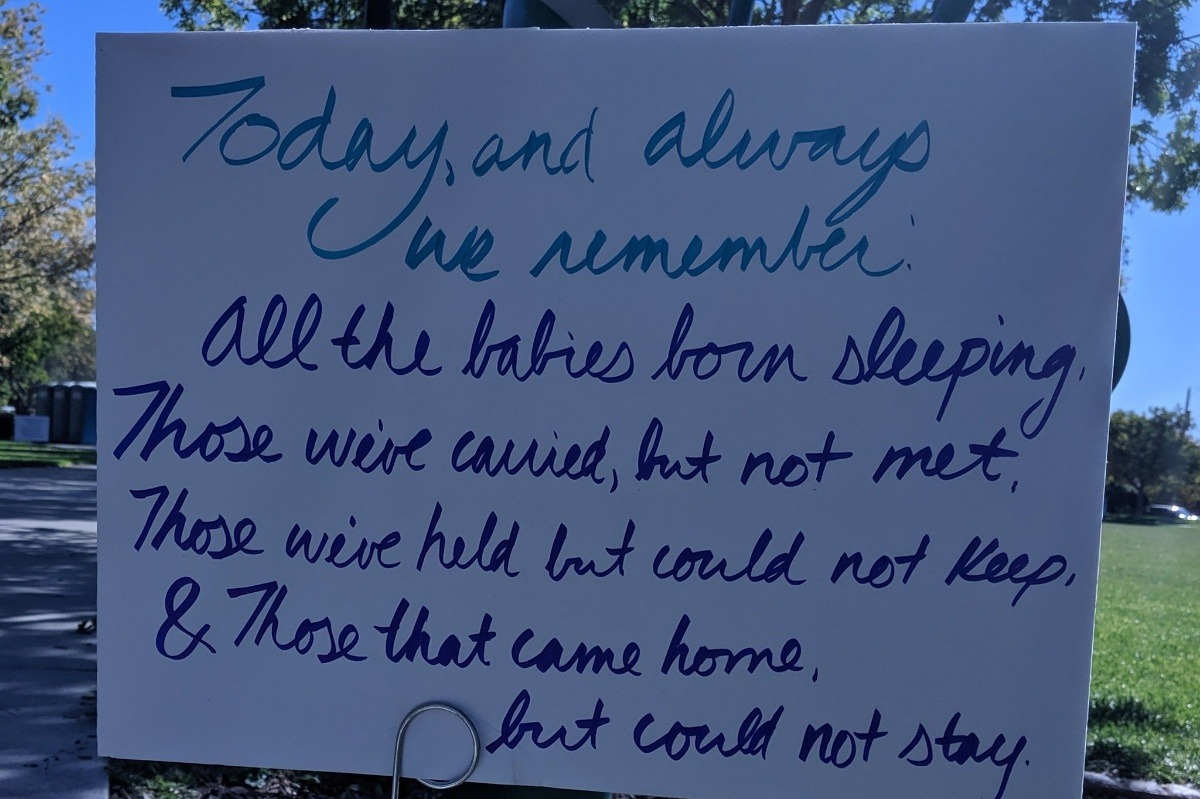 Today, and always
we remember:
All the babies born sleeping,
Those we've carried, but not met,
Those we've held but could not keep,
& Those that came home,
but could not stay.